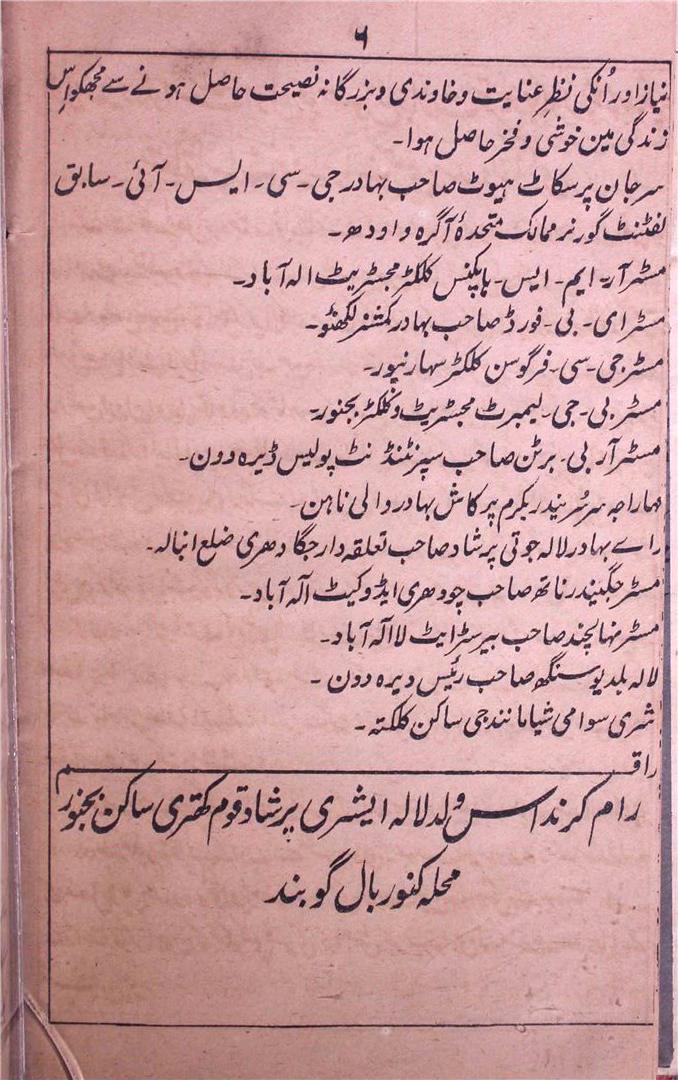 ۶
نیاز اور اُنکی نظرِ عنایت و خاوندی و بزرگانہ نصیحت حاصل ہونے سے مجھکو اِس
زندگی مین خوشی و فخر حاصل ہوا۔
سر جان پر سکاٹ ہیوٹ صاحب بہادر جی۔ سی۔ ایس۔ آئی۔ سابق
لفٹنٹ گورنر ممالک متحدۂ آگرہ و اودھ۔
مسٹر آر۔ ایم۔ ایس۔ ہاپکنس کلکٹر مجسٹریٹ الہ آباد۔
مسٹر ای۔ بی۔ فورڈ صاحب بہادر کمشنر لکھنؤ۔
مسٹر جی۔ سی۔ فرگوسن کلکٹر سہارنپور۔
مسٹر بی۔ جی۔ لیمبرٹ مجسٹریٹ و کلکٹر بجنور۔
مسٹر آر بی۔ برٹن صاحب سپرنٹنڈنٹ پولیس ڈیرہ دون۔
مہاراجہ سر سُریندر بکرم پرکاش بہادر والی ناہن۔
راے بہادر لالہ جوتی پرشاد صاحب تعلقہ دار جگادھری ضلع انبالہ۔
مسٹر جگیندر ناتھ صاحب چودھری ایڈوکیٹ الہ آباد۔
مسٹر نہالچند صاحب بیرسٹر ایٹ لا الہ آباد۔
لالہ بلدیو سنگھ صاحب رئیس دیرہ دون ۔
شری سوامی شیامانند جی ساکن کلکتہ۔
راقم
رام کرنداس ولد لالہ ایشری پرشاد قوم کھتری ساکن بجنور
محلہ کنور بال گوبند